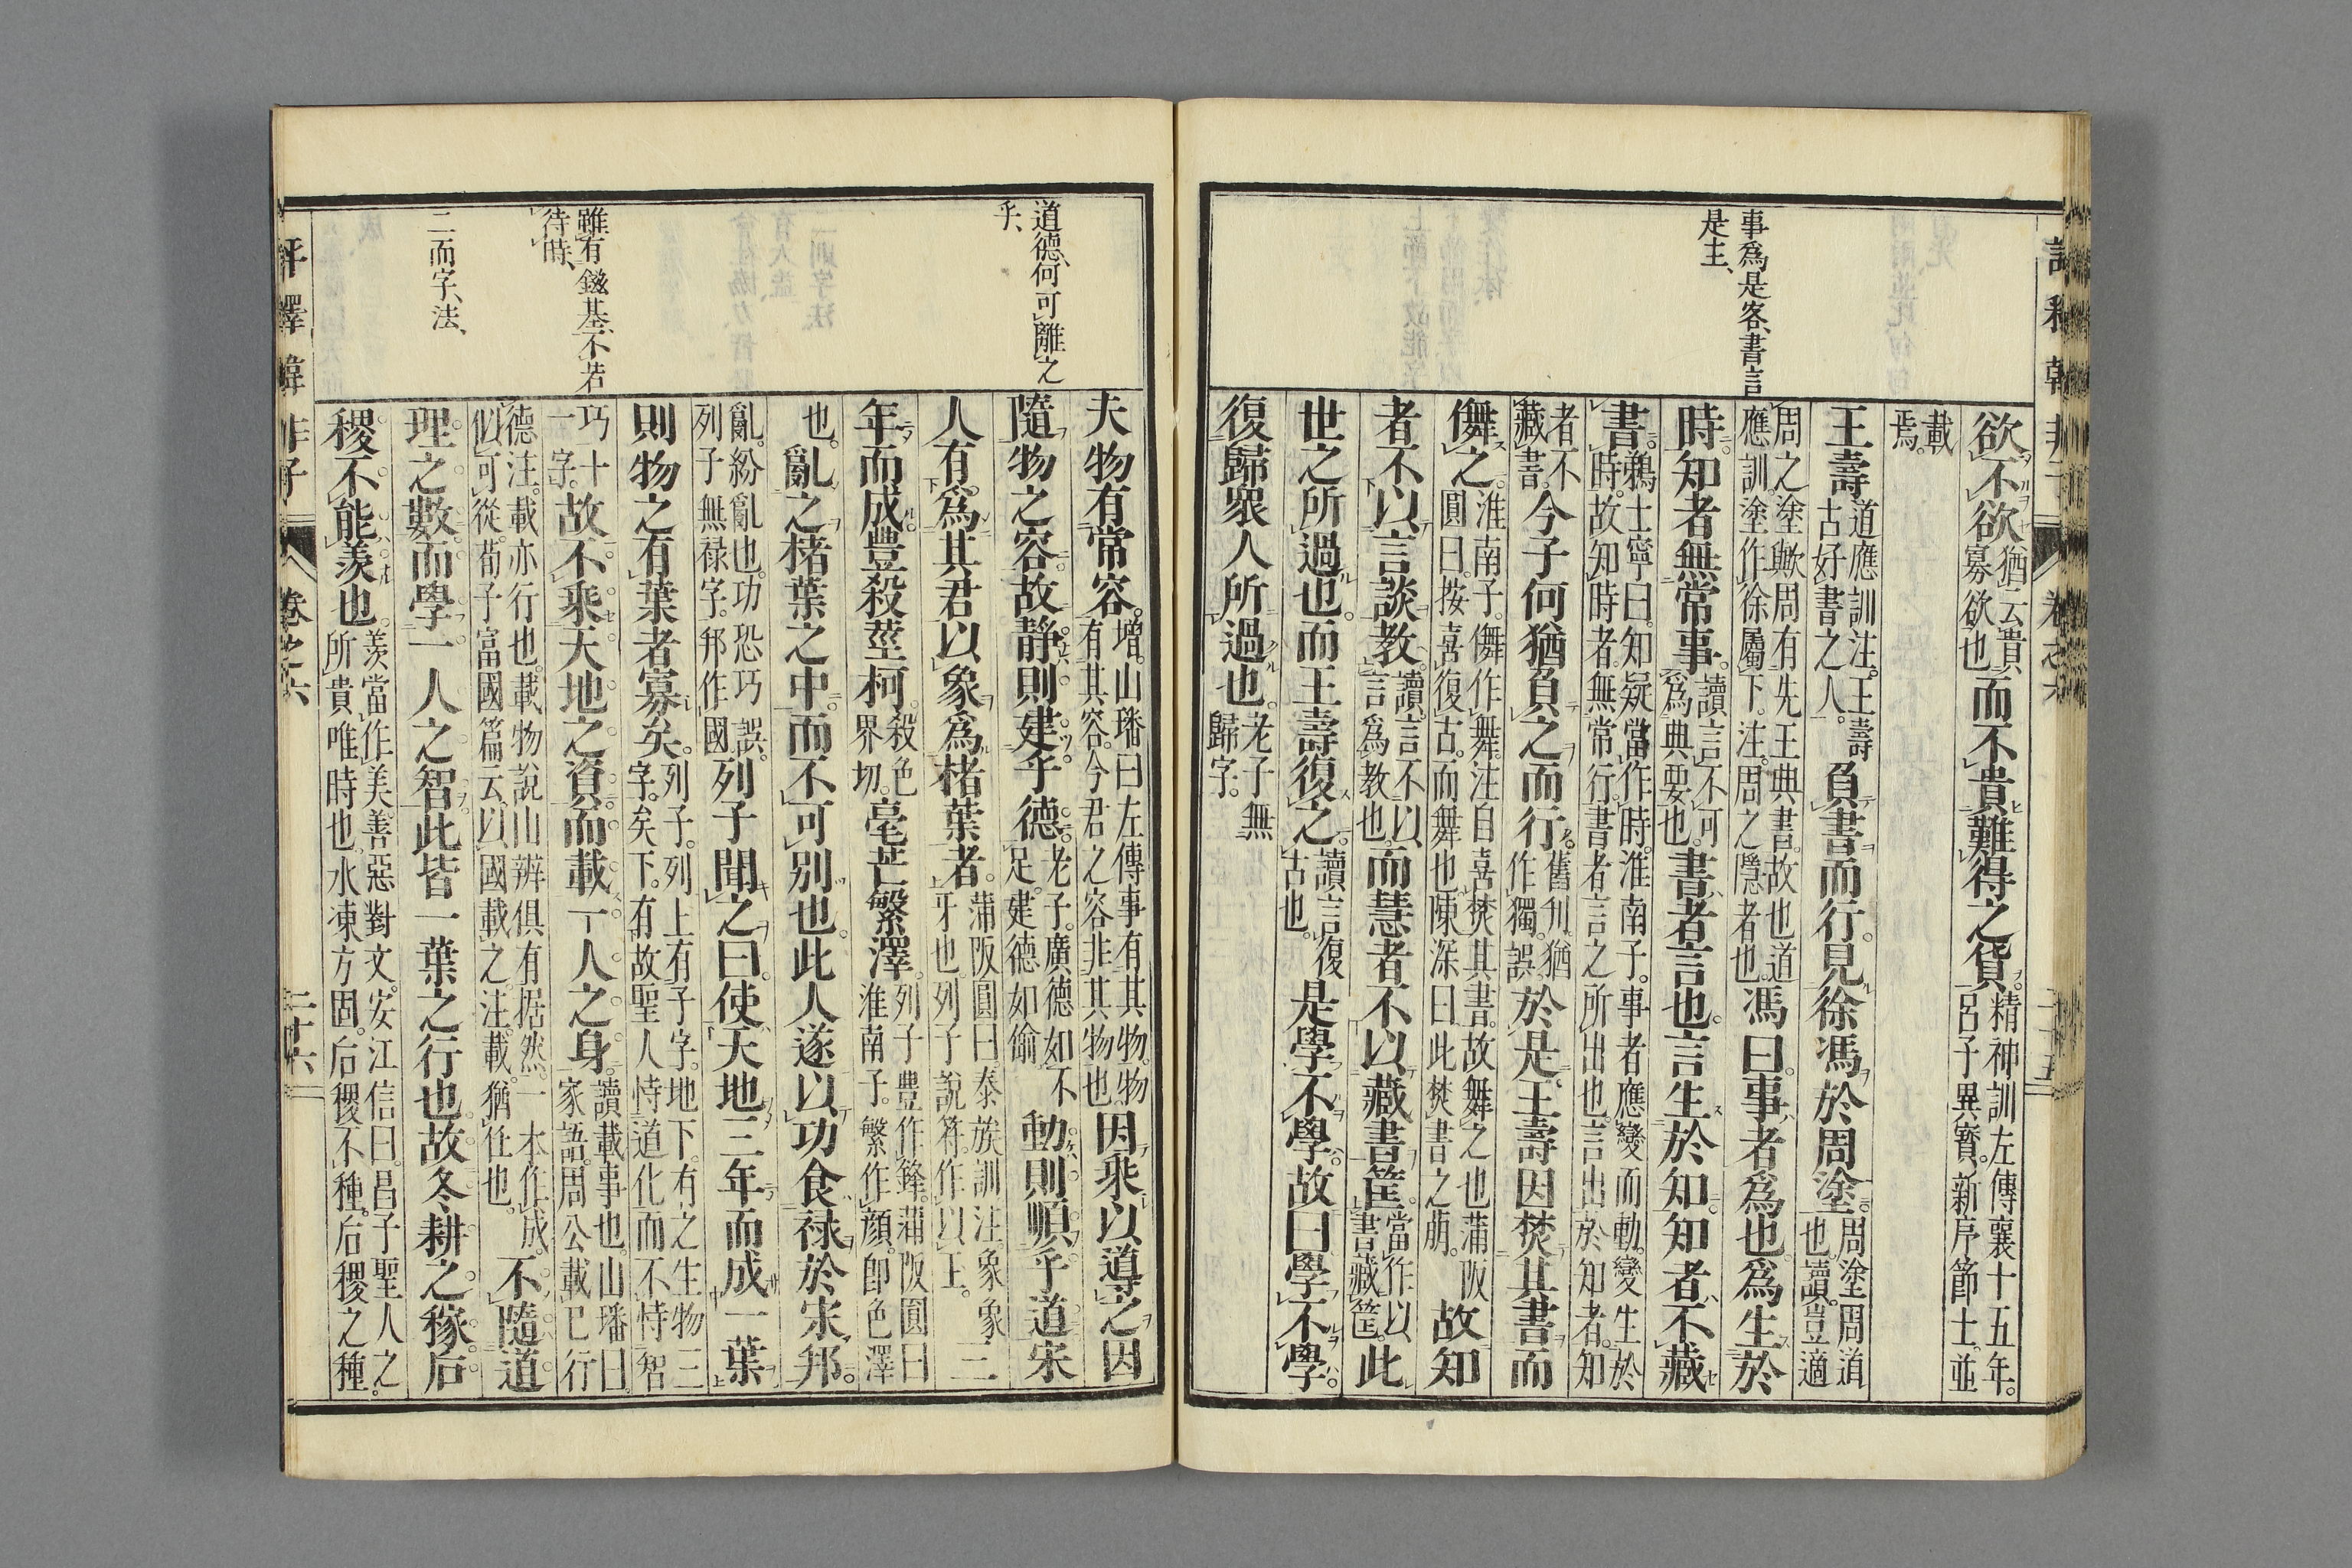 事爲是客、書言
是主、
欲不欲猶云貴寡欲也而不貴難得之貨精神訓左傳襄十五年。呂子異寶。新序節士。並
載焉。
王壽道應訓注。王壽古好書之人。負書而行。見徐馮於周塗。周塗周道也。讀。豈適
周之塗歟周有先王典書。故也道應訓。塗作徐屬下。注。周之隱者也。馮曰。事者爲也。爲生於
時。知者無常事。讀言不可爲典要也。書者言也。言生於知。知者不藏
書。鵜士寧曰。知疑當作時。淮南子。事者應變而動。變生於時。故知時者。無常行。書者言之所出也。言出於知者。知
者不藏書。今子何猶負之而行。舊刋。猶作獨。誤。於是王壽因焚其書而
儛之。淮南子。儛作舞。注。自喜焚其書。故舞之也蒲阪圓曰。按喜復古。而舞也。陳深曰此焚書之萠。故知
者不以言談教。讀。言不以言爲教也。而慧者不以藏書篋。當作以書藏篋。此
世之所過也。而王壽復之。讀言復古也。是學不學。故曰。學不學。
復歸衆人所過也。老子無歸字。
評釋韓非子 卷之六 二十六
道德何可離之
乎、
雖有鎡基、不若
待時、
二而字、法、
夫物有常容。增。山璠曰左傳事有其物。物有其容。今君之容非其物也因乘以道導之。因
隨物之容。故静則建乎德。老子。廣德如不足。建德如偷動則順乎道宋
人有爲其君。以象爲楮葉者。蒲阪圓曰泰族訓注。象象牙也。列子說符。作以玉。三
年而成。豐殺莖柯。殺色界切。毫芒繁澤。列子豐作鋒。蒲阪圓曰淮南子。繁作顏。卽色澤
也。亂之楮葉之中。而不可別也。此人遂以功食祿於宋邦。
亂。紛亂也。功恐巧誤。列子無祿字。邦作國列子聞之曰。使天地三年而成一葉
則物之有葉者寡矣。列子。列上有子字。地下。有之生物三字。矣下。有故聖人恃道化而不恃智
巧十一字。故不乘天地之資。而載一人之身。讀載事也。山璠曰。家語。周公載己行
德注。載亦行也。載物說山辨俱有据然。一本作成。似可從。荀子富國篇云。以國載之。注。載。猶任也。不隨道
理之數。而學一人之智。此皆一葉之行也。故冬耕之稼。后
稷不能羨也。羨當作美。善惡對文。安江信曰。呂子聖人之所貴唯時也。水凍方固。后稷不種。后稷之種。